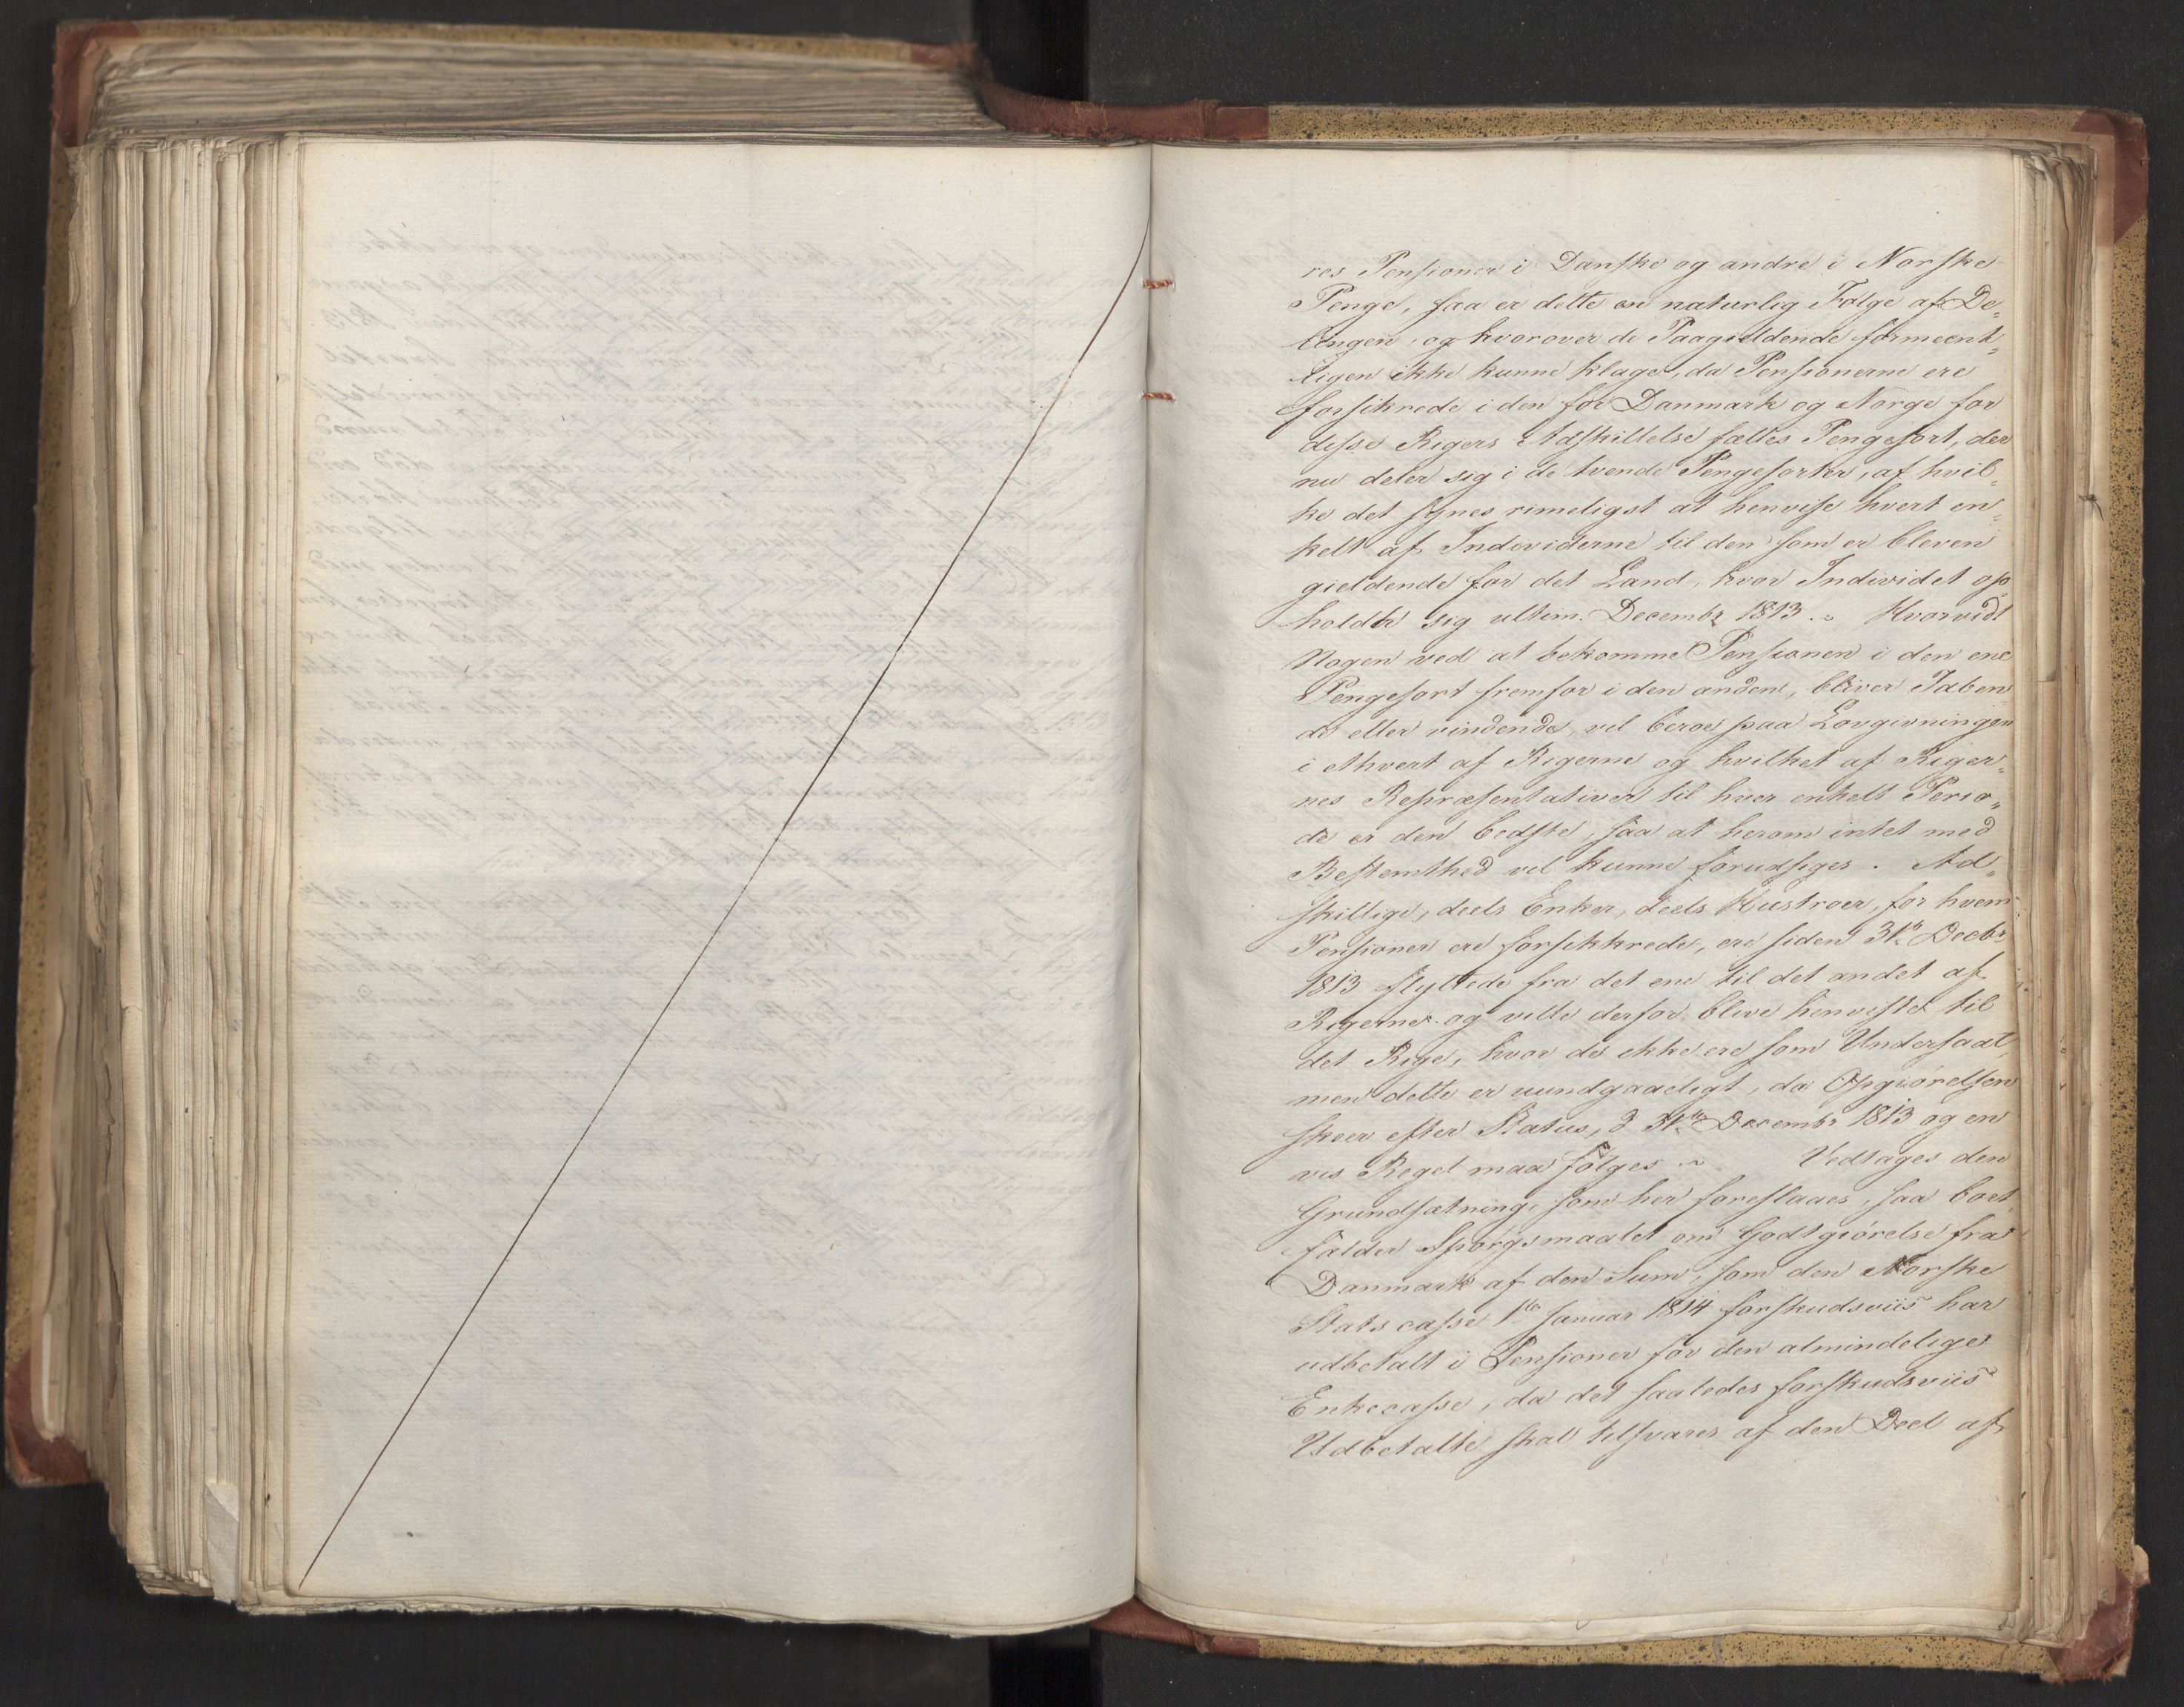 res Pensioner i Danske og andre i Norske
Penge, saa er dette en naturlig Følge af De„
lingen og hvorover de Paagieldende formeent„
ligen ikke kunne klage, da Pensionerne ere
forsikrede i den for Danmark og Norge før
disse Rigers Adskillelse fælles Pengesort, der
nu deler sig i de tvende Pengesorter, af hvil„
ke det synes rimeligst at henvise hvert en„
kelt af Individerne til den som er bleven
gieldende for det Land, hvor Individet op
holdte sig ultim. Decembr 1813. Hvorvidt
Nogen ved at bekomme Pensionen i den ene
Pengesort fremfor i den anden, bliver Taben
de eller vindende, vil beroe paa Lovgivningen
i ethvert af Rigerne og hvilket af Riger„
nes Repræsentativer til hver enkelt Perio„
de er den bedste, saa at herom intet med
Bestemthed vil kunne forudsiges. Ad„
skillige, deels Enker, deels Hustroer, for hvem
Pensioner ere forsikkrede, ere siden 31te Decbr
1813 flyttede fra det ene til det andet af
Rigerne og ville derfor blive henviste til
det Rige, hvor de ikke ere som Undersaat,
men dette er uundgaaeligt, da Opgiørelsen
skeer efter Status, d 31te Decembr 1813 og en
vis Regel maa følges Vedtages den
Grundsætning, som her foreslaaes, saa bort
falder Spørgsmaalet om Godtgiørelse fra
Danmark af den Sum, som den Norske
Statscasse 1te Januar 1814 forskudsviis har
udbetalt i Pensioner for den almindelige
Enkecasse, da det saaledes forskudsviis
Udbetalte skal tilsvares af den Deel af